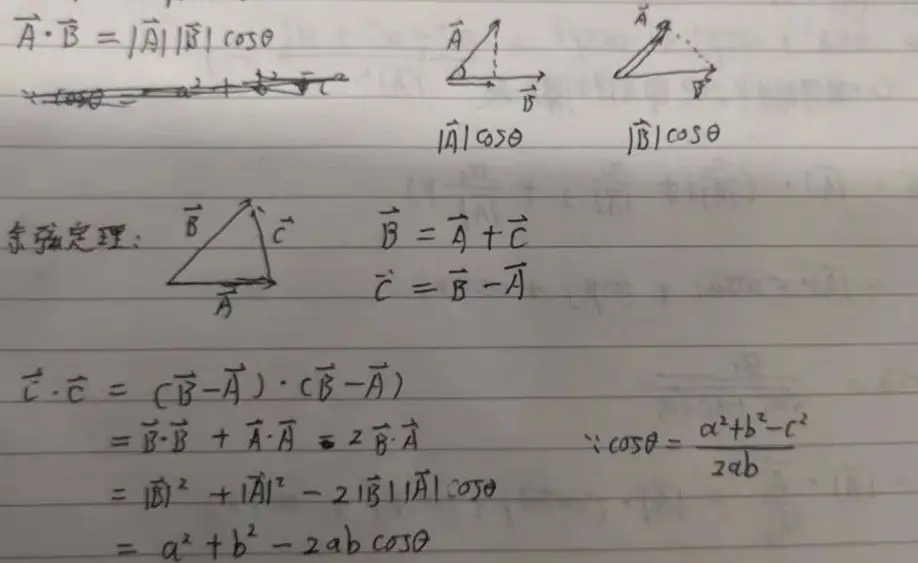 A⃗·B⃗ = |A⃗||B⃗| cosθ
A⃗
B⃗
|A⃗| cosθ
A⃗
B⃗
|B⃗| cosθ
余弦定理:
B⃗
C⃗
A⃗
B⃗ = A⃗ + C⃗
C⃗ = B⃗ - A⃗
C⃗·C⃗ = (B⃗-A⃗)·(B⃗-A⃗)
= B⃗·B⃗ + A⃗·A⃗ - 2B⃗·A⃗
= |B⃗|² + |A⃗|² - 2|B⃗||A⃗|cosθ
= a² + b² - 2ab cosθ
∵cosθ = (a²+b²-c²)/2ab